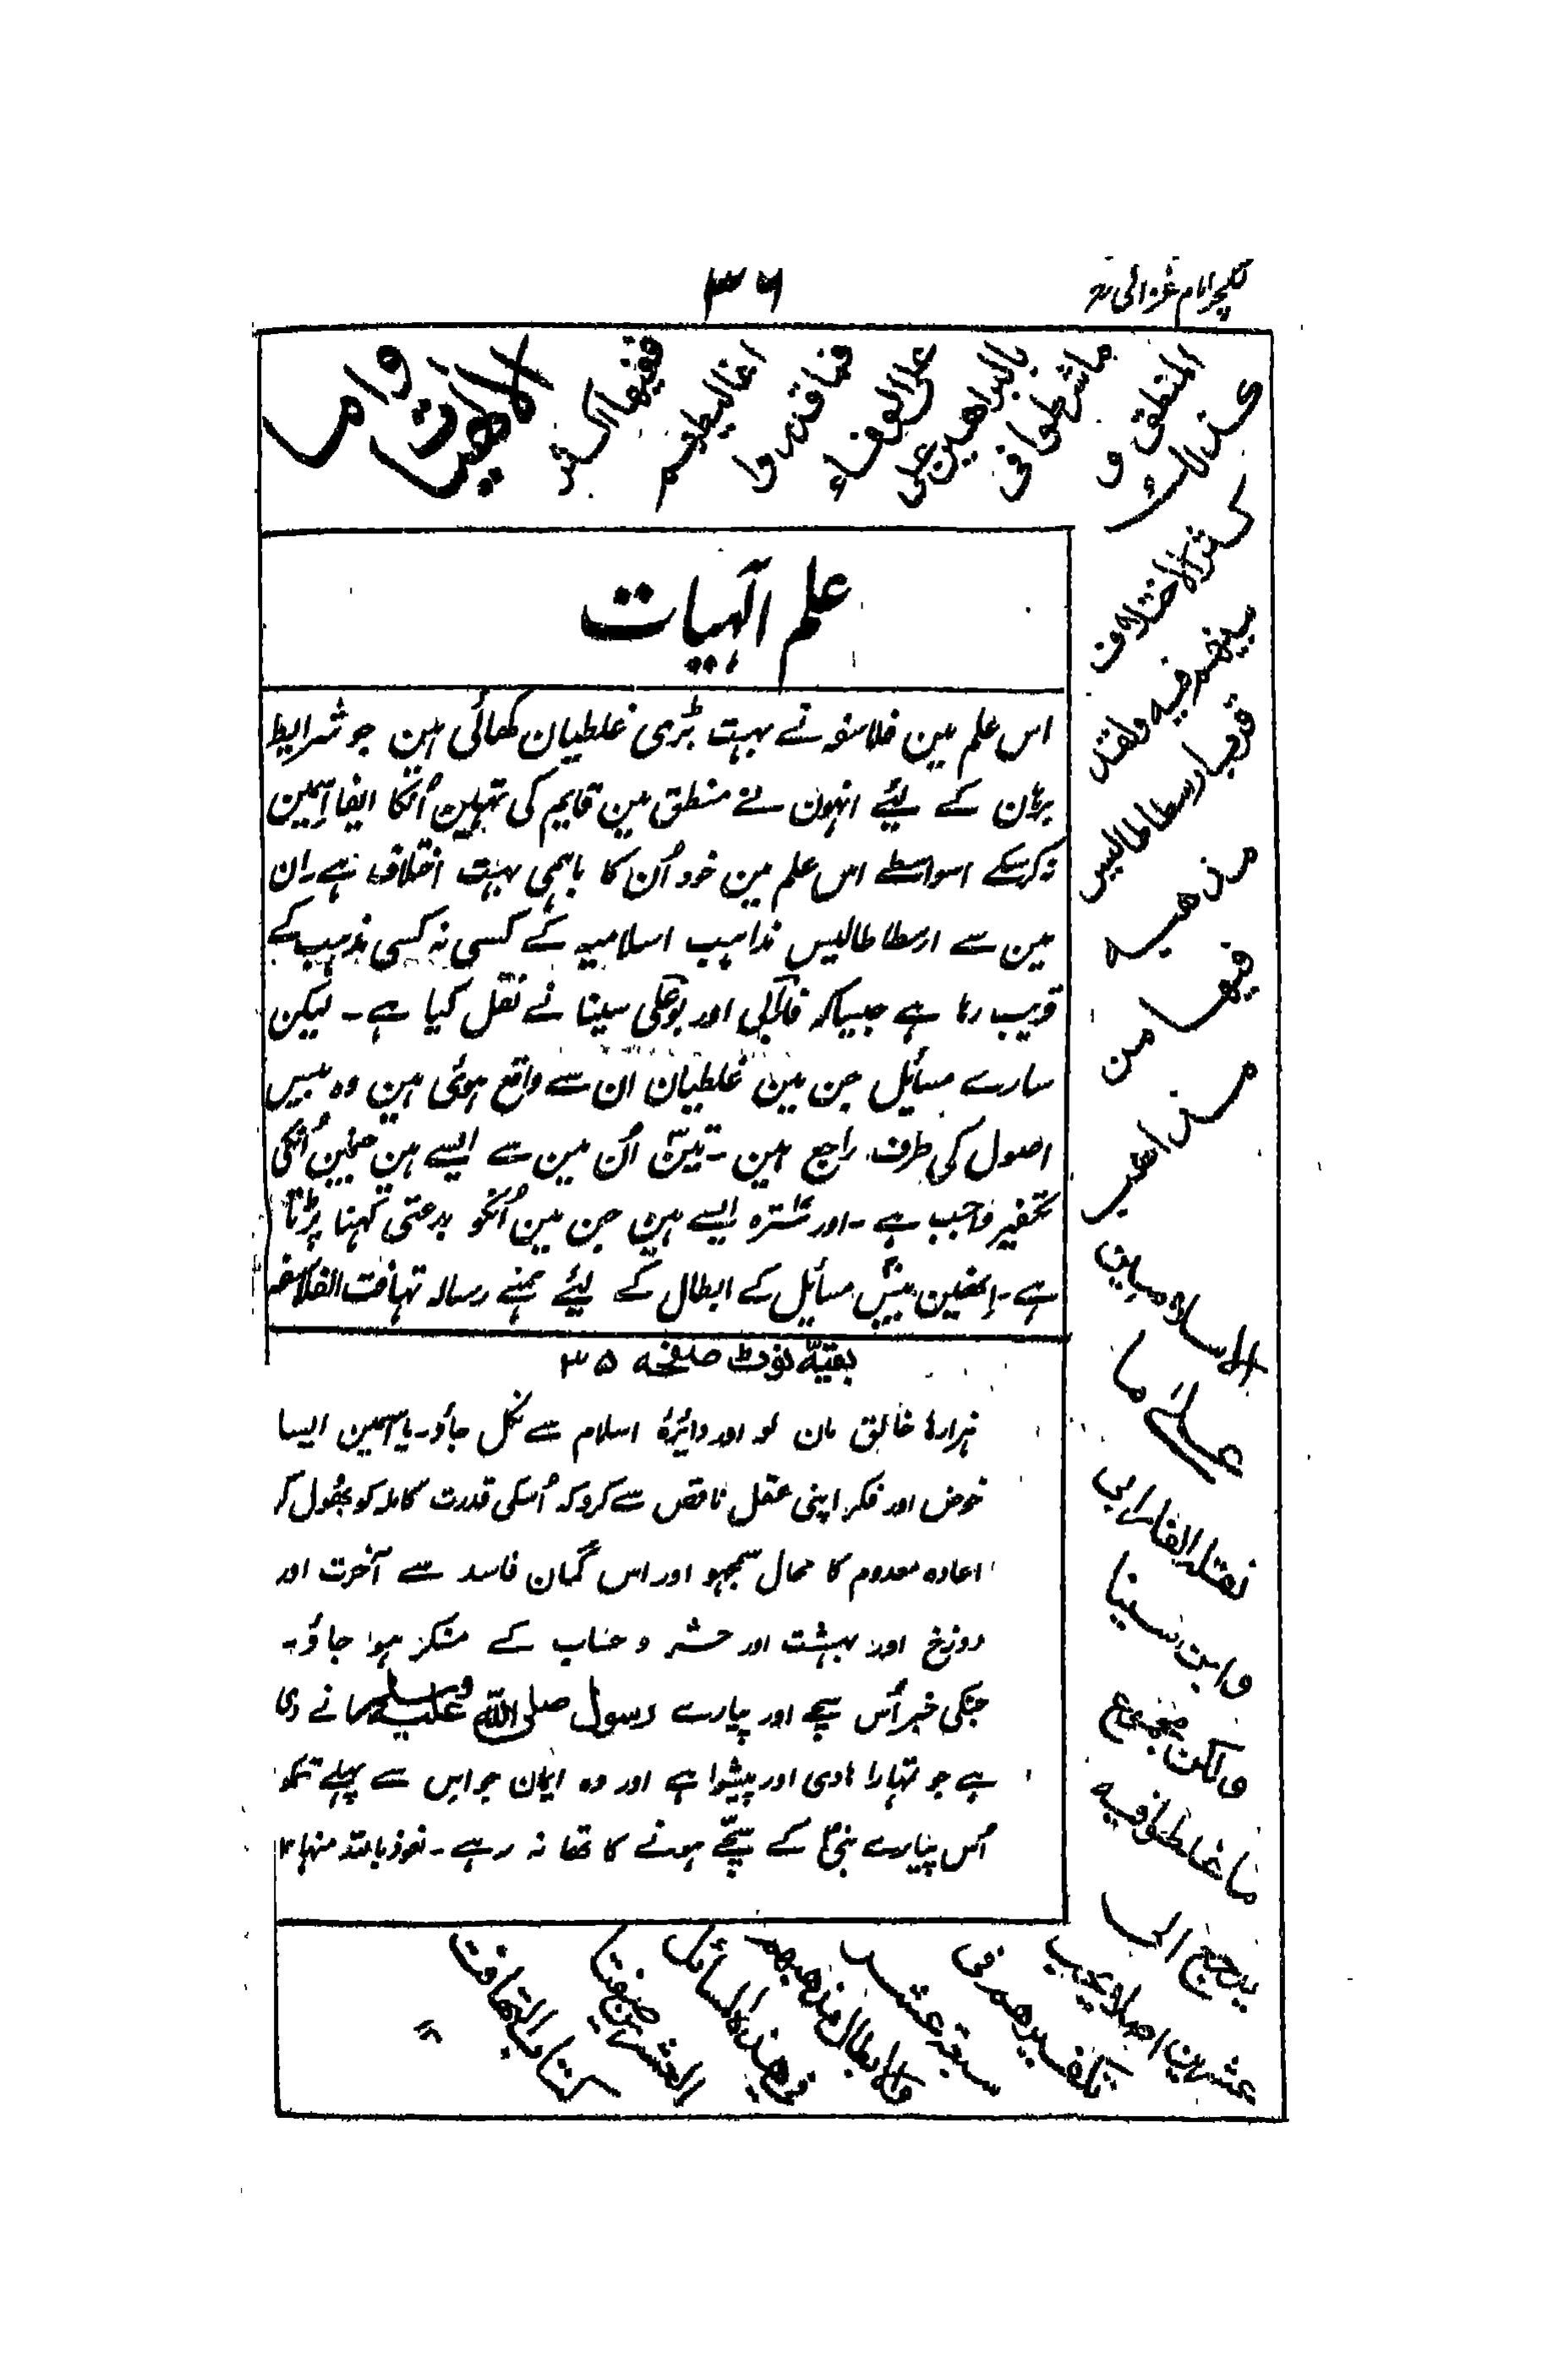 لکچر امام غزالی رح
۳۶
واما
الالٰهیات
ففیها اکثر
اغالیطهم
فما قدروا
علی الوفاء
بالبراهین علی
ما شرطوا فی
المنطق و
لذالک
کثر الاختلاف
بینهم فیه ولقد
قرب ارسطاطالیس
مذهبه
فیها من
مذاهب
الاسلامیین
علےٰ ما
نقله الفارابی
وابن سینا
ولکن مجموع
ما غلطوا فیه
یرجع الی
عشرین اصلا یجب
تکفیرهم فی
سبعة عشر
ولابطال مذهبهم
فی هذه المسائل
العشرین صنفنا
کتاب التهافت
علم الٰہیات
اس علم مین فلاسفہ نے بہت بڑی غلطیان کھائی ہین جو شرایط
برہان کے لیئے انہون نے منطق مین قایم کی تہین اُنکا ایفا اسمین
نہ کرسکے اسواسطے اس علم مین خود اُن کا باہمی بہت اختلاف ہے۔ ان
مین سے ارسطاطالیس مذاہب اسلامیہ کے کسی نہ کسی مذہب کے
قریب رہا ہے جیساکہ فارابی اور بوعلی سینا نے نقل کیا ہے۔ لیکن
سارے مسائل جن مین غلطیان ان سے واقع ہوئی ہین وہ بیس
اصول کی طرف راجع ہین۔ تین اُن مین سے ایسے ہین جنمین اُنکی
تکفیر واجب ہے۔ اور سترہ ایسے ہین جن مین اُنکو بدعتی کہنا پڑتا
ہے۔ انھین بیس مسائل کے ابطال کے لیئے ہمنے رسالہ تہافت الفلاسفہ
بقیہ نوٹ صفحہ ۳۵
ہزارہا خالق مان لو اور دائرۂ اسلام سے نکل جاؤ۔ یا اسمین ایسا
خوض اور فکر اپنی عقل ناقص سے کرو کہ اُسکی قدرت کاملہ کو بھول کر
اعادہ معدوم کا محال سمجھو اور اس گمان فاسد سے آخرت اور
دوزخ اور بہشت اور حشر و حساب کے منکر ہو جاؤ۔
جنکی خبر اُس سچے اور پیارے رسول صلی اللہ علیہ وسلم نے دی
ہے جو تمہارا ہادی اور پیشوا ہے اور وہ ایمان جو اس سے پہلے تمکو
اُس پیارے نبی کے سچے ہونے کا تھا نہ رہے۔ نعوذ باللہ منہا ۱۲